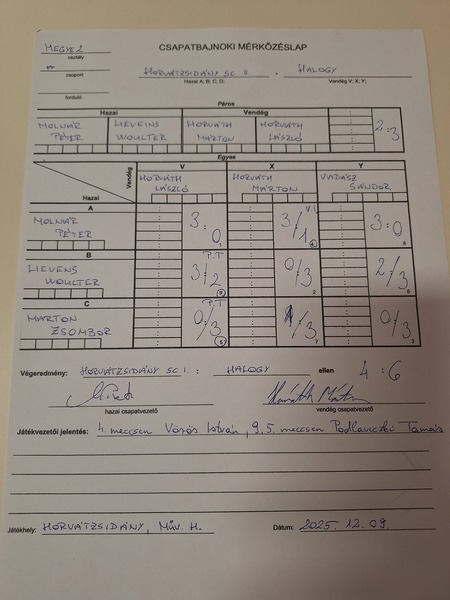 CSAPATBAJNOKI MÉRKŐZÉSLAP
MEGYE 2
osztály
csoport
forduló
HORVÁTZSIDÁNY SC II. - HALOGY
Hazai A; B; C; D; Vendég V; X; Y;
Páros
Hazai Vendég
MOLNÁR PÉTER LIEVEINS WOULTER HORVÁTH MÁRTON HORVÁTH LÁSZLÓ 2:3
Egyes
Vendég Hazai
V X Y
HORVÁTH LÁSZLÓ HORVÁTH MÁRTON VADÁSZ SÁNDOR
A
MOLNÁR PÉTER 3:0 1 V.I 3/1 4 3:0
B
LIEVENS WOULTER P.T 3/2 9 0/3 2 2/3
C
MARTON ZSOMBOR P.T 0/3 5 1/3 7 0/3 3
Végeredmény: HORVÁTZSIDÁNY SC I. : HALOGY ellen 4:6
Horváth Márton
hazai csapatvezető vendég csapatvezető
Játékvezetői jelentés: 4. meccsen Vörös István, 9, 5. meccsen Podlaviczki Tamás
Játékhely: HORVÁTZSIDÁNY, MŰV. H. Dátum: 2025. 12. 09.